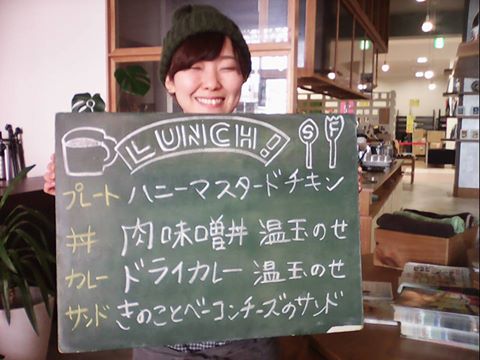 LUNCH! S F
プレート ハニーマスタードチキン
丼 肉味噌丼 温玉のせ
カレー ドライカレー 温玉のせ
サンド きのことベーコンチーズのサンド